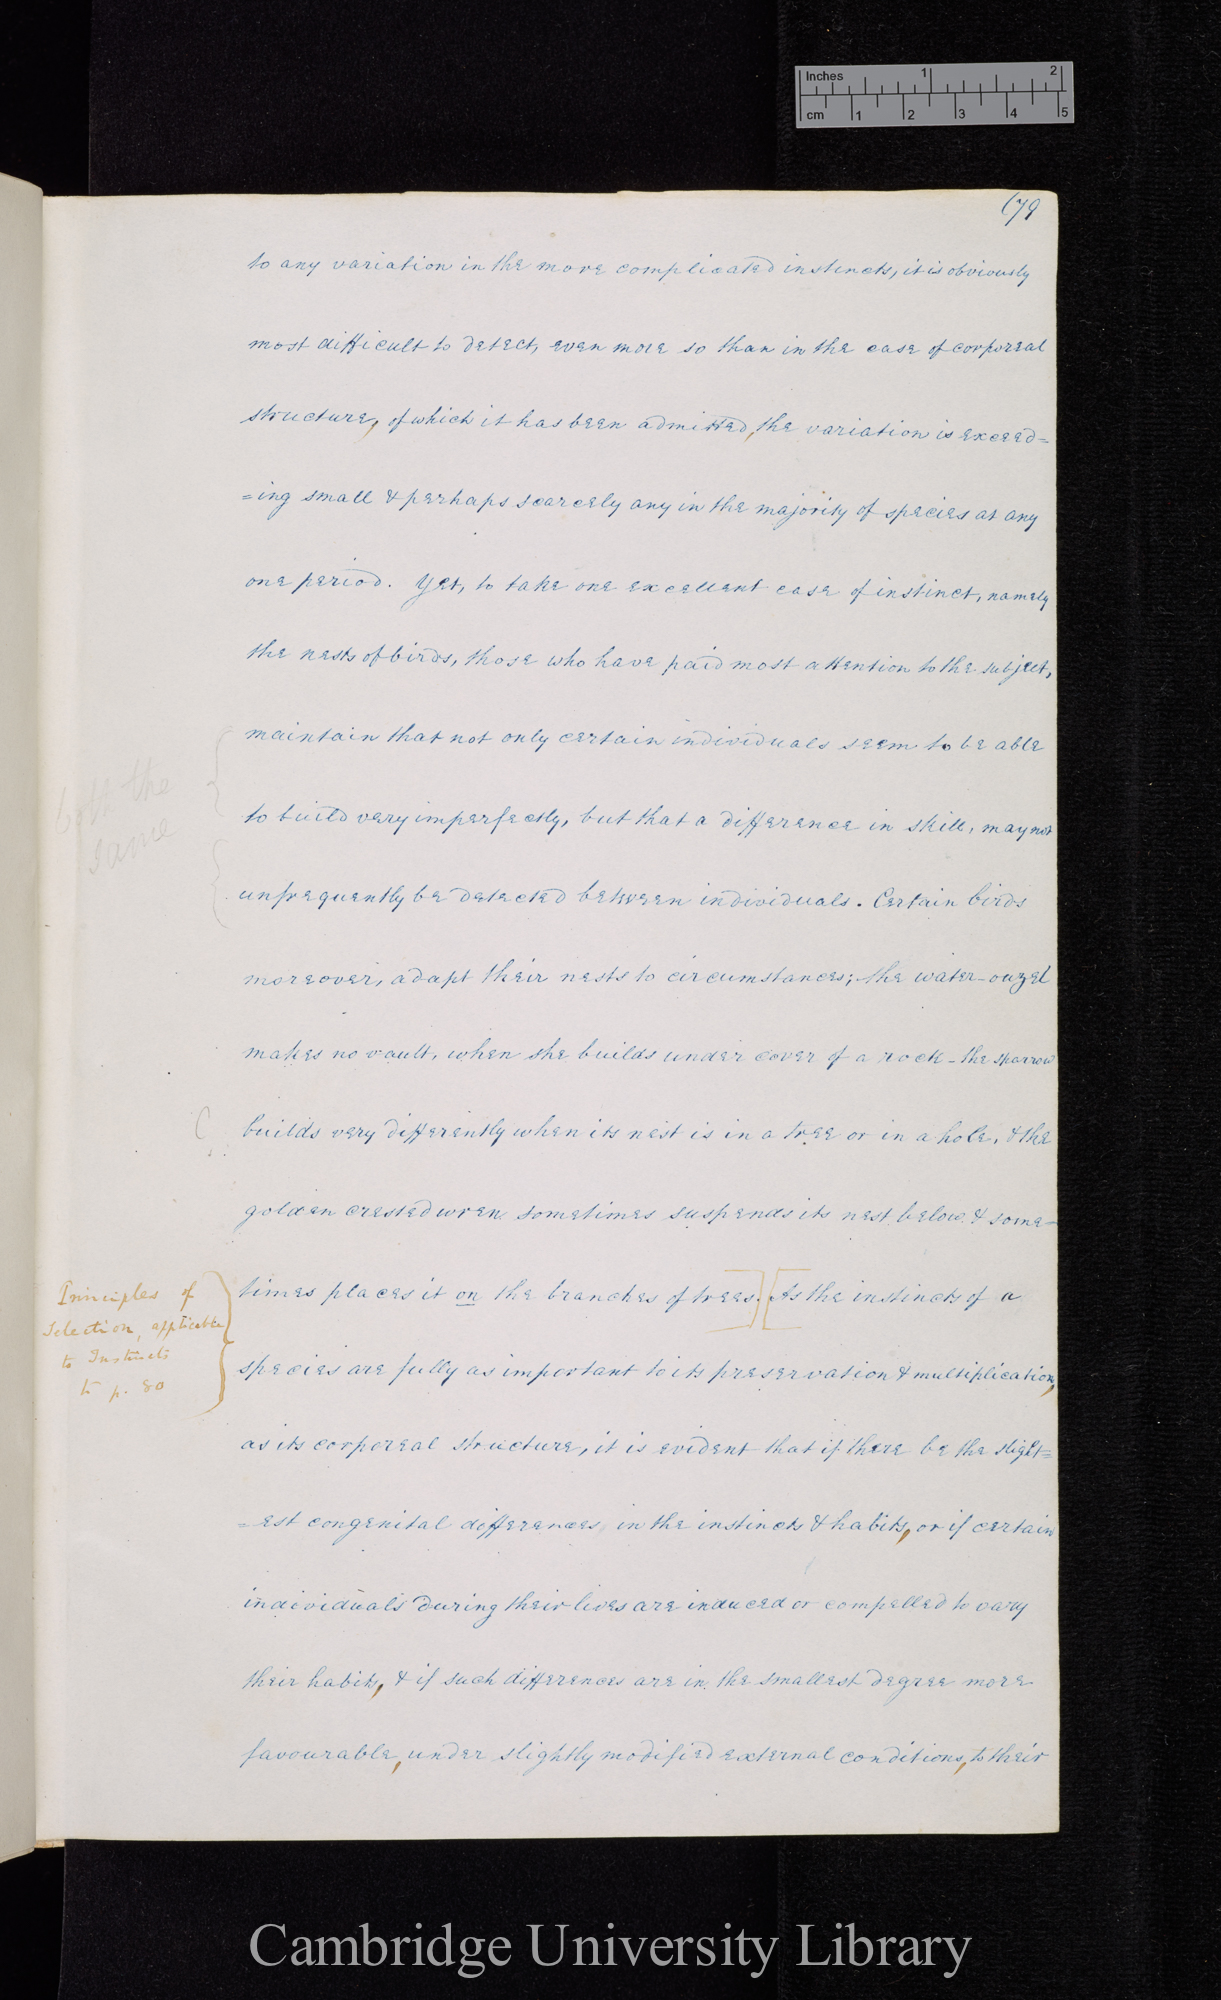 Inches 1 2
cm 1 2 3 4 5
(79
to any variation in the more complicated instincts, it is obviously
most difficult to detect, even more so than in the case of corporeal
structure, of which it has been admitted, the variation is exceed=
=ing small & perhaps scarcely any in the majority of species at any
one period. Yet, to take one excellent case of instinct, namely
the nests of birds, those who have paid most attention to the subject,
maintain that not only certain individuals seem to be able
both the
same
to build very imperfectly, but that a difference in skill, may not
unfrequently be detected between individuals. Certain birds
moreover, adapt their nests to circumstances; the water-ouzel
makes no vault, when she builds under cover of a rock - the sparrow
builds very differently when its nest is in a tree or in a hole, & the
golden crested wren sometimes suspends its nest below & some=
times places it on the branches of trees.] [As the instincts of a
Principles of
Selection, applicable
to Instincts
to p. 80
species are fully as important to its preservation & multiplication,
as its corporeal structure, it is evident that if there be the slight=
=est congenital differences, in the instincts & habits, or if certain
individuals during their lives are induced or compelled to vary
their habits, & if such differences are in the smallest degree more
favourable, under slightly modified external conditions, to their
Cambridge University Library